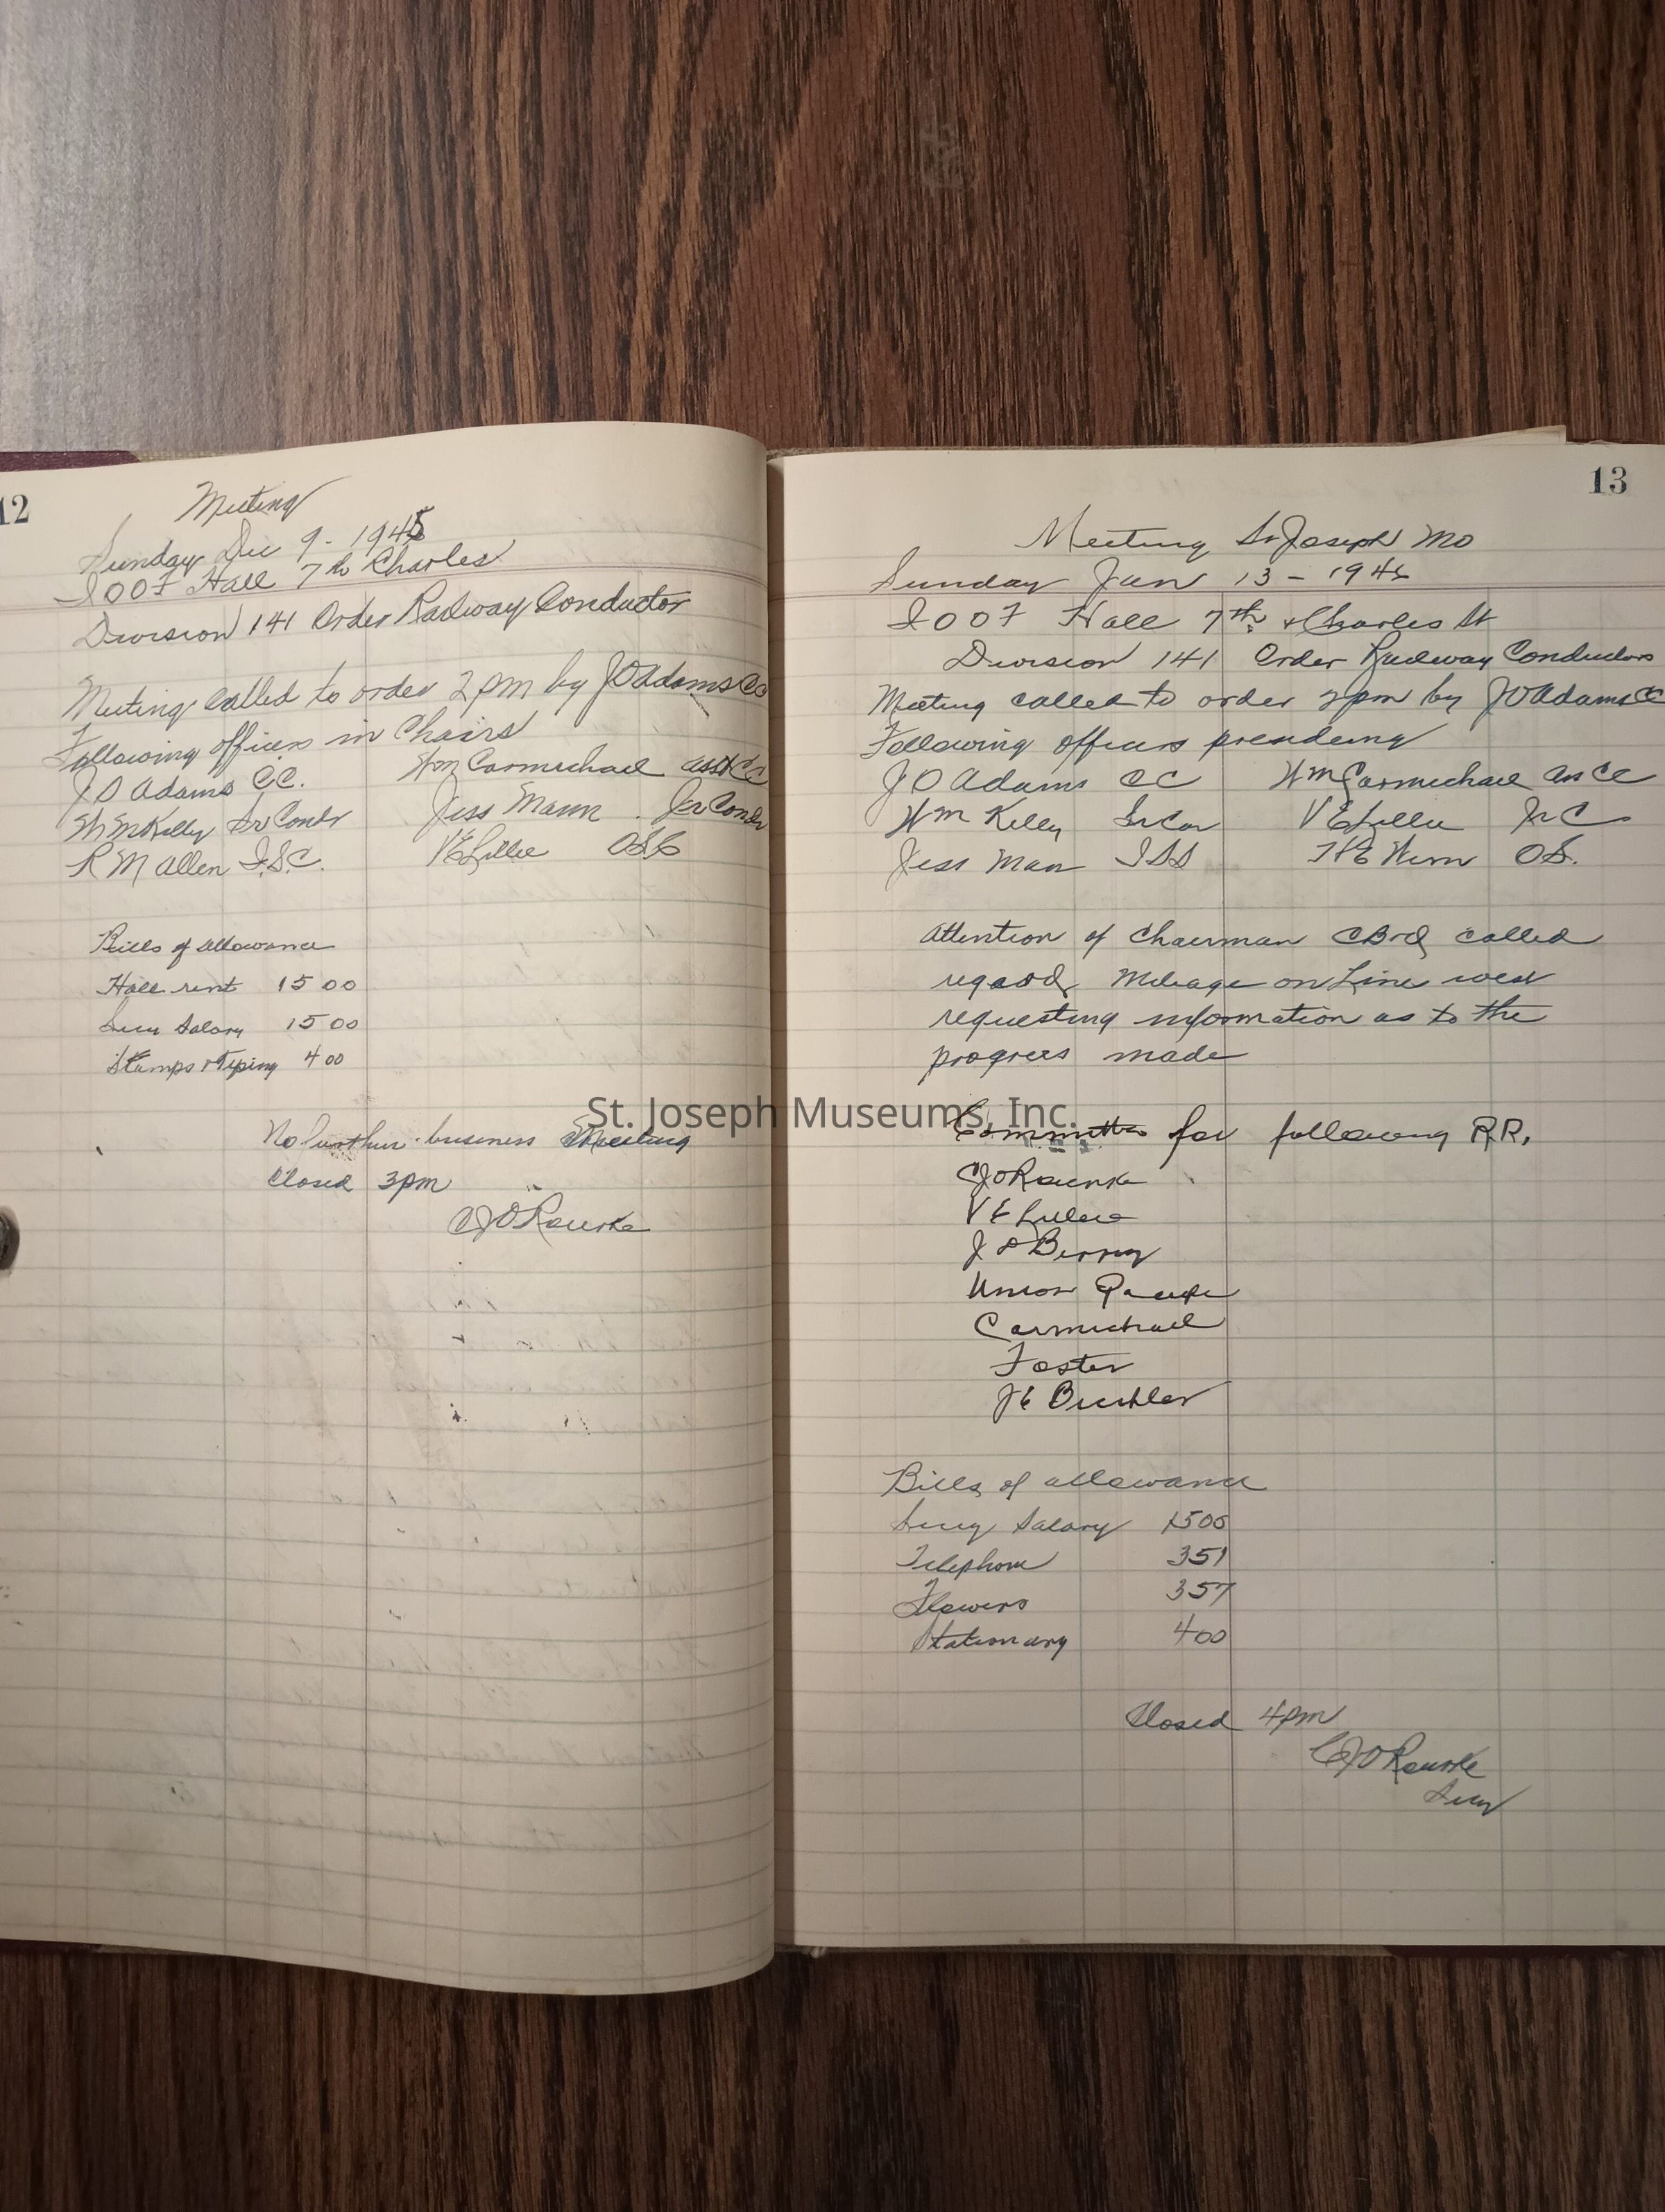 12
Meeting
Sunday Dec 9 - 1945
IOOF Hall 7th Charles
Division 141 Order Railway Conductor
Meeting called to order 2 pm by J O Adams CC
Following officers in Chairs
J O Adams C.C. Wm Carmichael asst CC
Wm Kelly Sr Condr Jess Mann Jr Condr
R M Allen I.S.C. V E Lillie OSC
Bills of allowance
Hall rent 15 00
Secy Salary 15 00
Stamps & Typing 4 00
No further business Meeting
Closed 3 pm
C J O Rourke
13
Meeting St Joseph Mo
Sunday Jan 13 - 1946
IOOF Hall 7th & Charles St
Division 141 Order Railway Conductors
Meeting called to order 2 pm by J O Adams CC
Following officers presideing
J O Adams CC Wm Carmichael Ass CC
Wm Kelly Sr Con V E Lillie Jr C
Jess Man ISS OS.
Attention of Chairman CB&Q called
regard Mileage on Line west
requesting information as to the
progress made
St. Joseph Museums, Inc.
Committee for following RR.
C J O Rourke
V E Lillie
J Berry
Union
Carmichael
Foster
J E
Bills of allowance
Secy Salary 1500
Telephone 351
Flowers 357
Stationary 400
Closed 4 pm
C J O Rourke
Secy